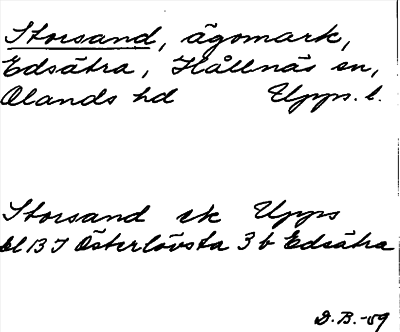 Storsand, ägomark,
Edsätra, Hållnäs sn,
Olands hd Upps. l.
Storsand ek Upps
bl 13 I Österlövsta 3 b Edsätra
D. B. -59